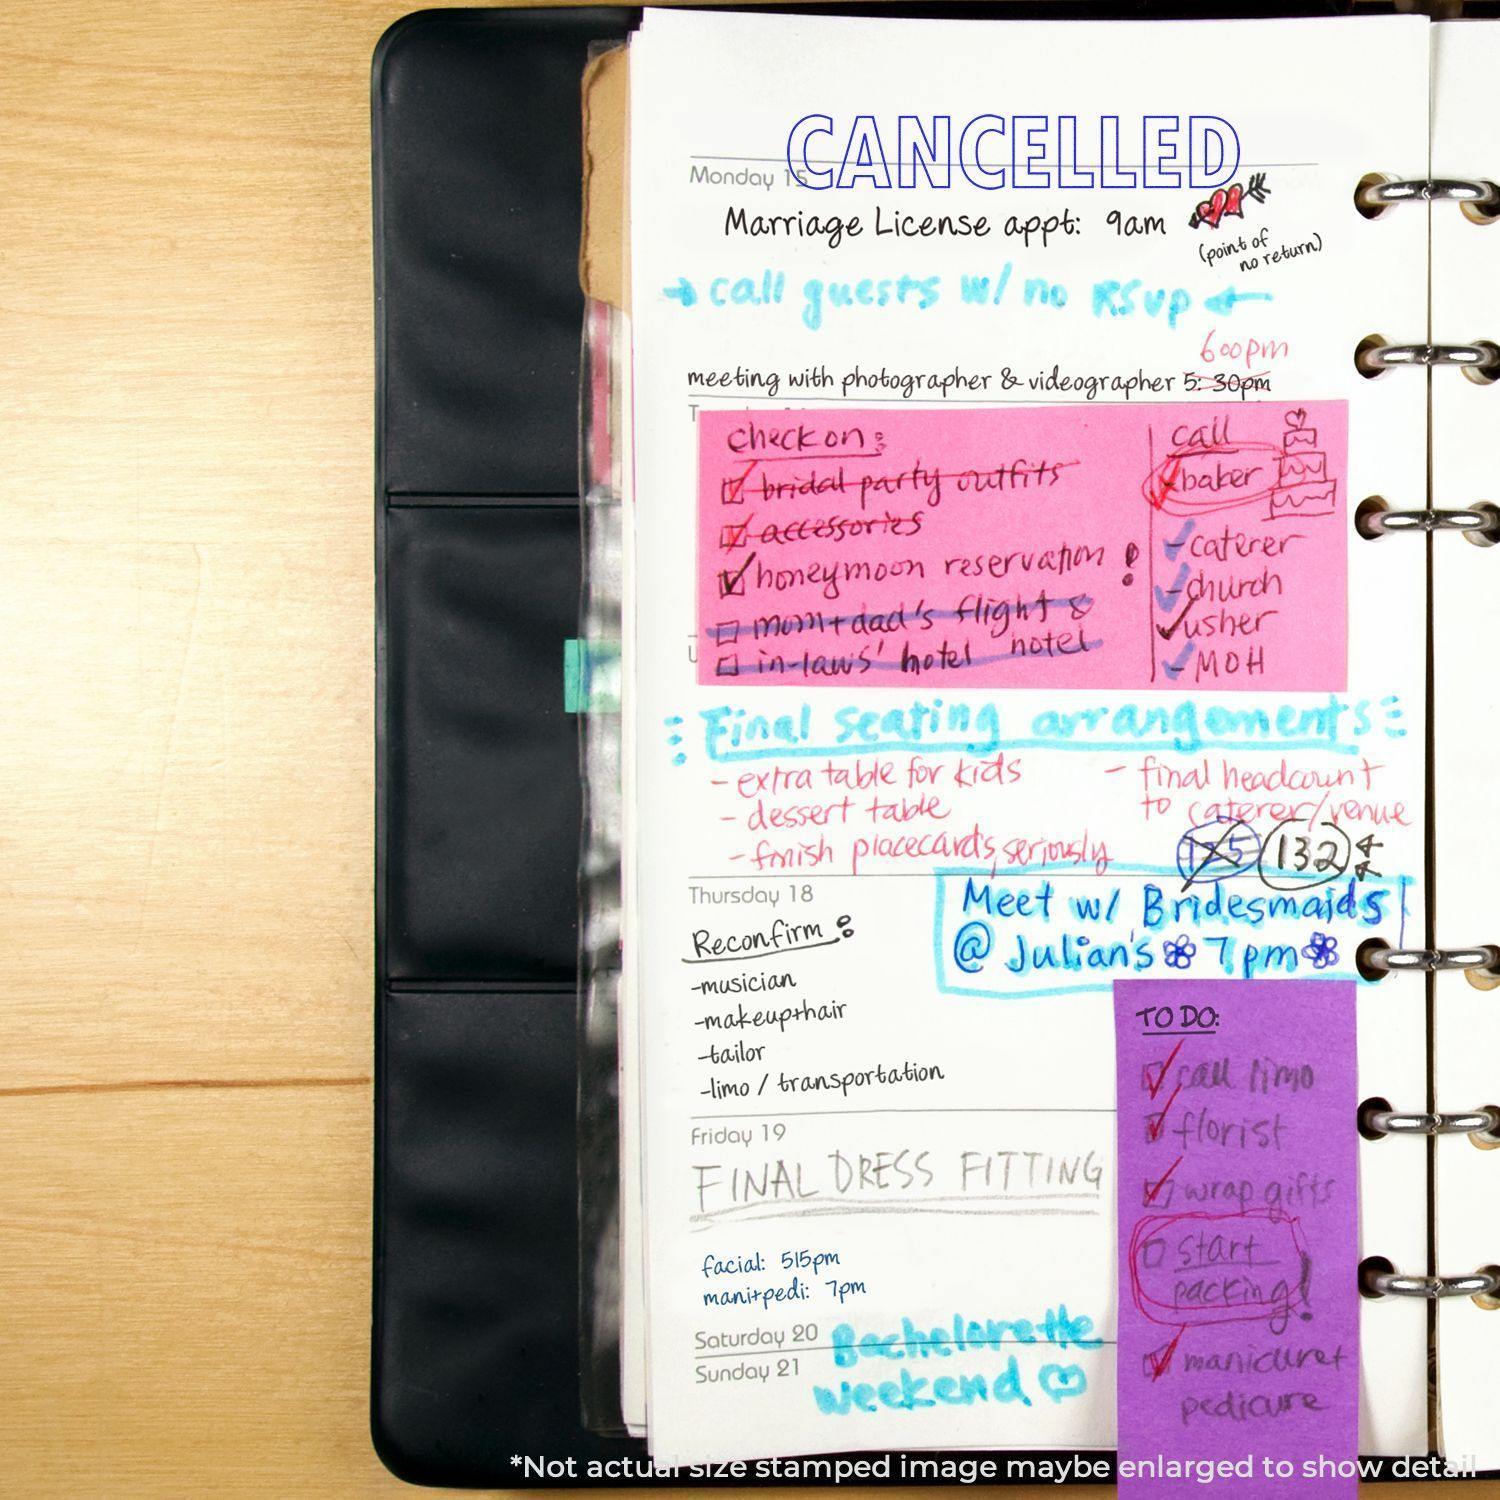 CANCELLED
Monday 15
Marriage License appt: 9am
(point of
no return)
→ call guests w/ no RSVP ←
600pm
meeting with photographer & videographer 5:30pm
check on:
bridal party outfits
accessories
honeymoon reservation!
mom+dad's flight &
hotel
in-laws' hotel
call
-baker
-caterer
-church
usher
-MOH
Final seating arrangements
- extra table for kids
- dessert table
- finish placecards, seriously
- final headcount
to caterer/venue
125 132
Thursday 18
Meet w/ Bridesmaids
@ Julian's 7pm
Reconfirm:
-musician
-makeup+hair
-tailor
-limo / transportation
TO DO:
call limo
florist
wrap gifts
start
packing!
manicure+
pedicure
Friday 19
FINAL DRESS FITTING
facial: 515pm
mani+pedi: 7pm
Saturday 20
Sunday 21
Bachelorette
weekend
*Not actual size stamped image maybe enlarged to show detail